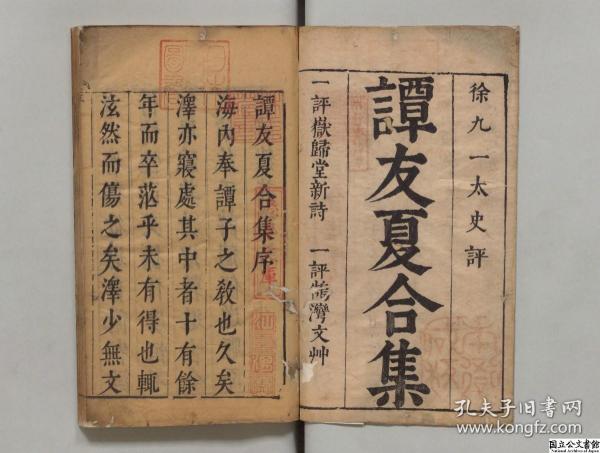 徐九一太史評
譚友夏合集
一評嶽歸堂新詩 一評鵠灣文艸
譚友夏合集序
海內奉譚子之敎也久矣
澤亦寢處其中者十有餘
年而卒茫乎未有得也輒
泫然而傷之矣澤少無文
孔夫子旧书网
www.kongfz.com
国立公文書館
National Archives of Japan